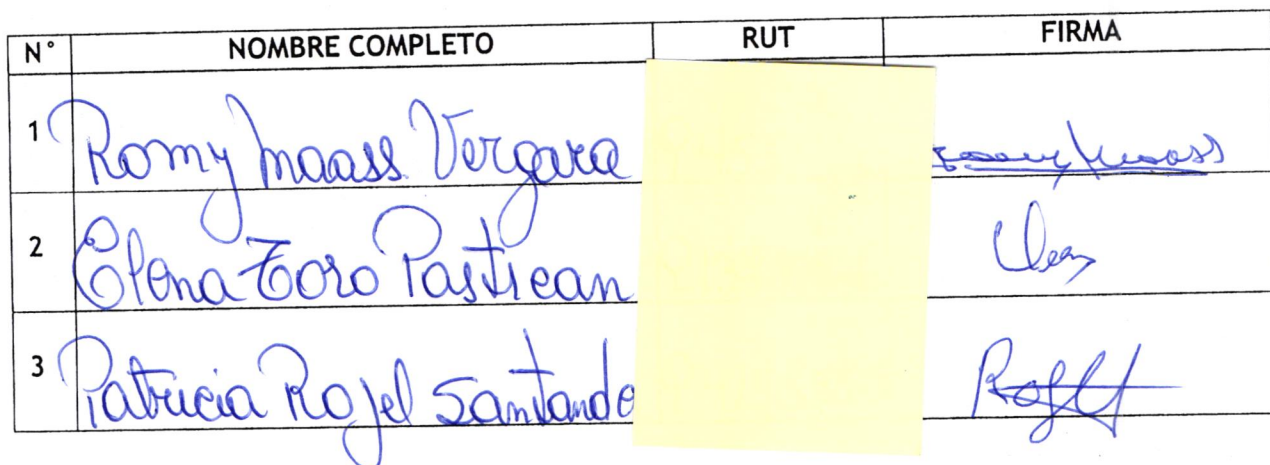 N° NOMBRE COMPLETO RUT FIRMA
1 Romy Maass Vergara
2 Elena Toro Pastrean
3 Patricia Rojel Santande